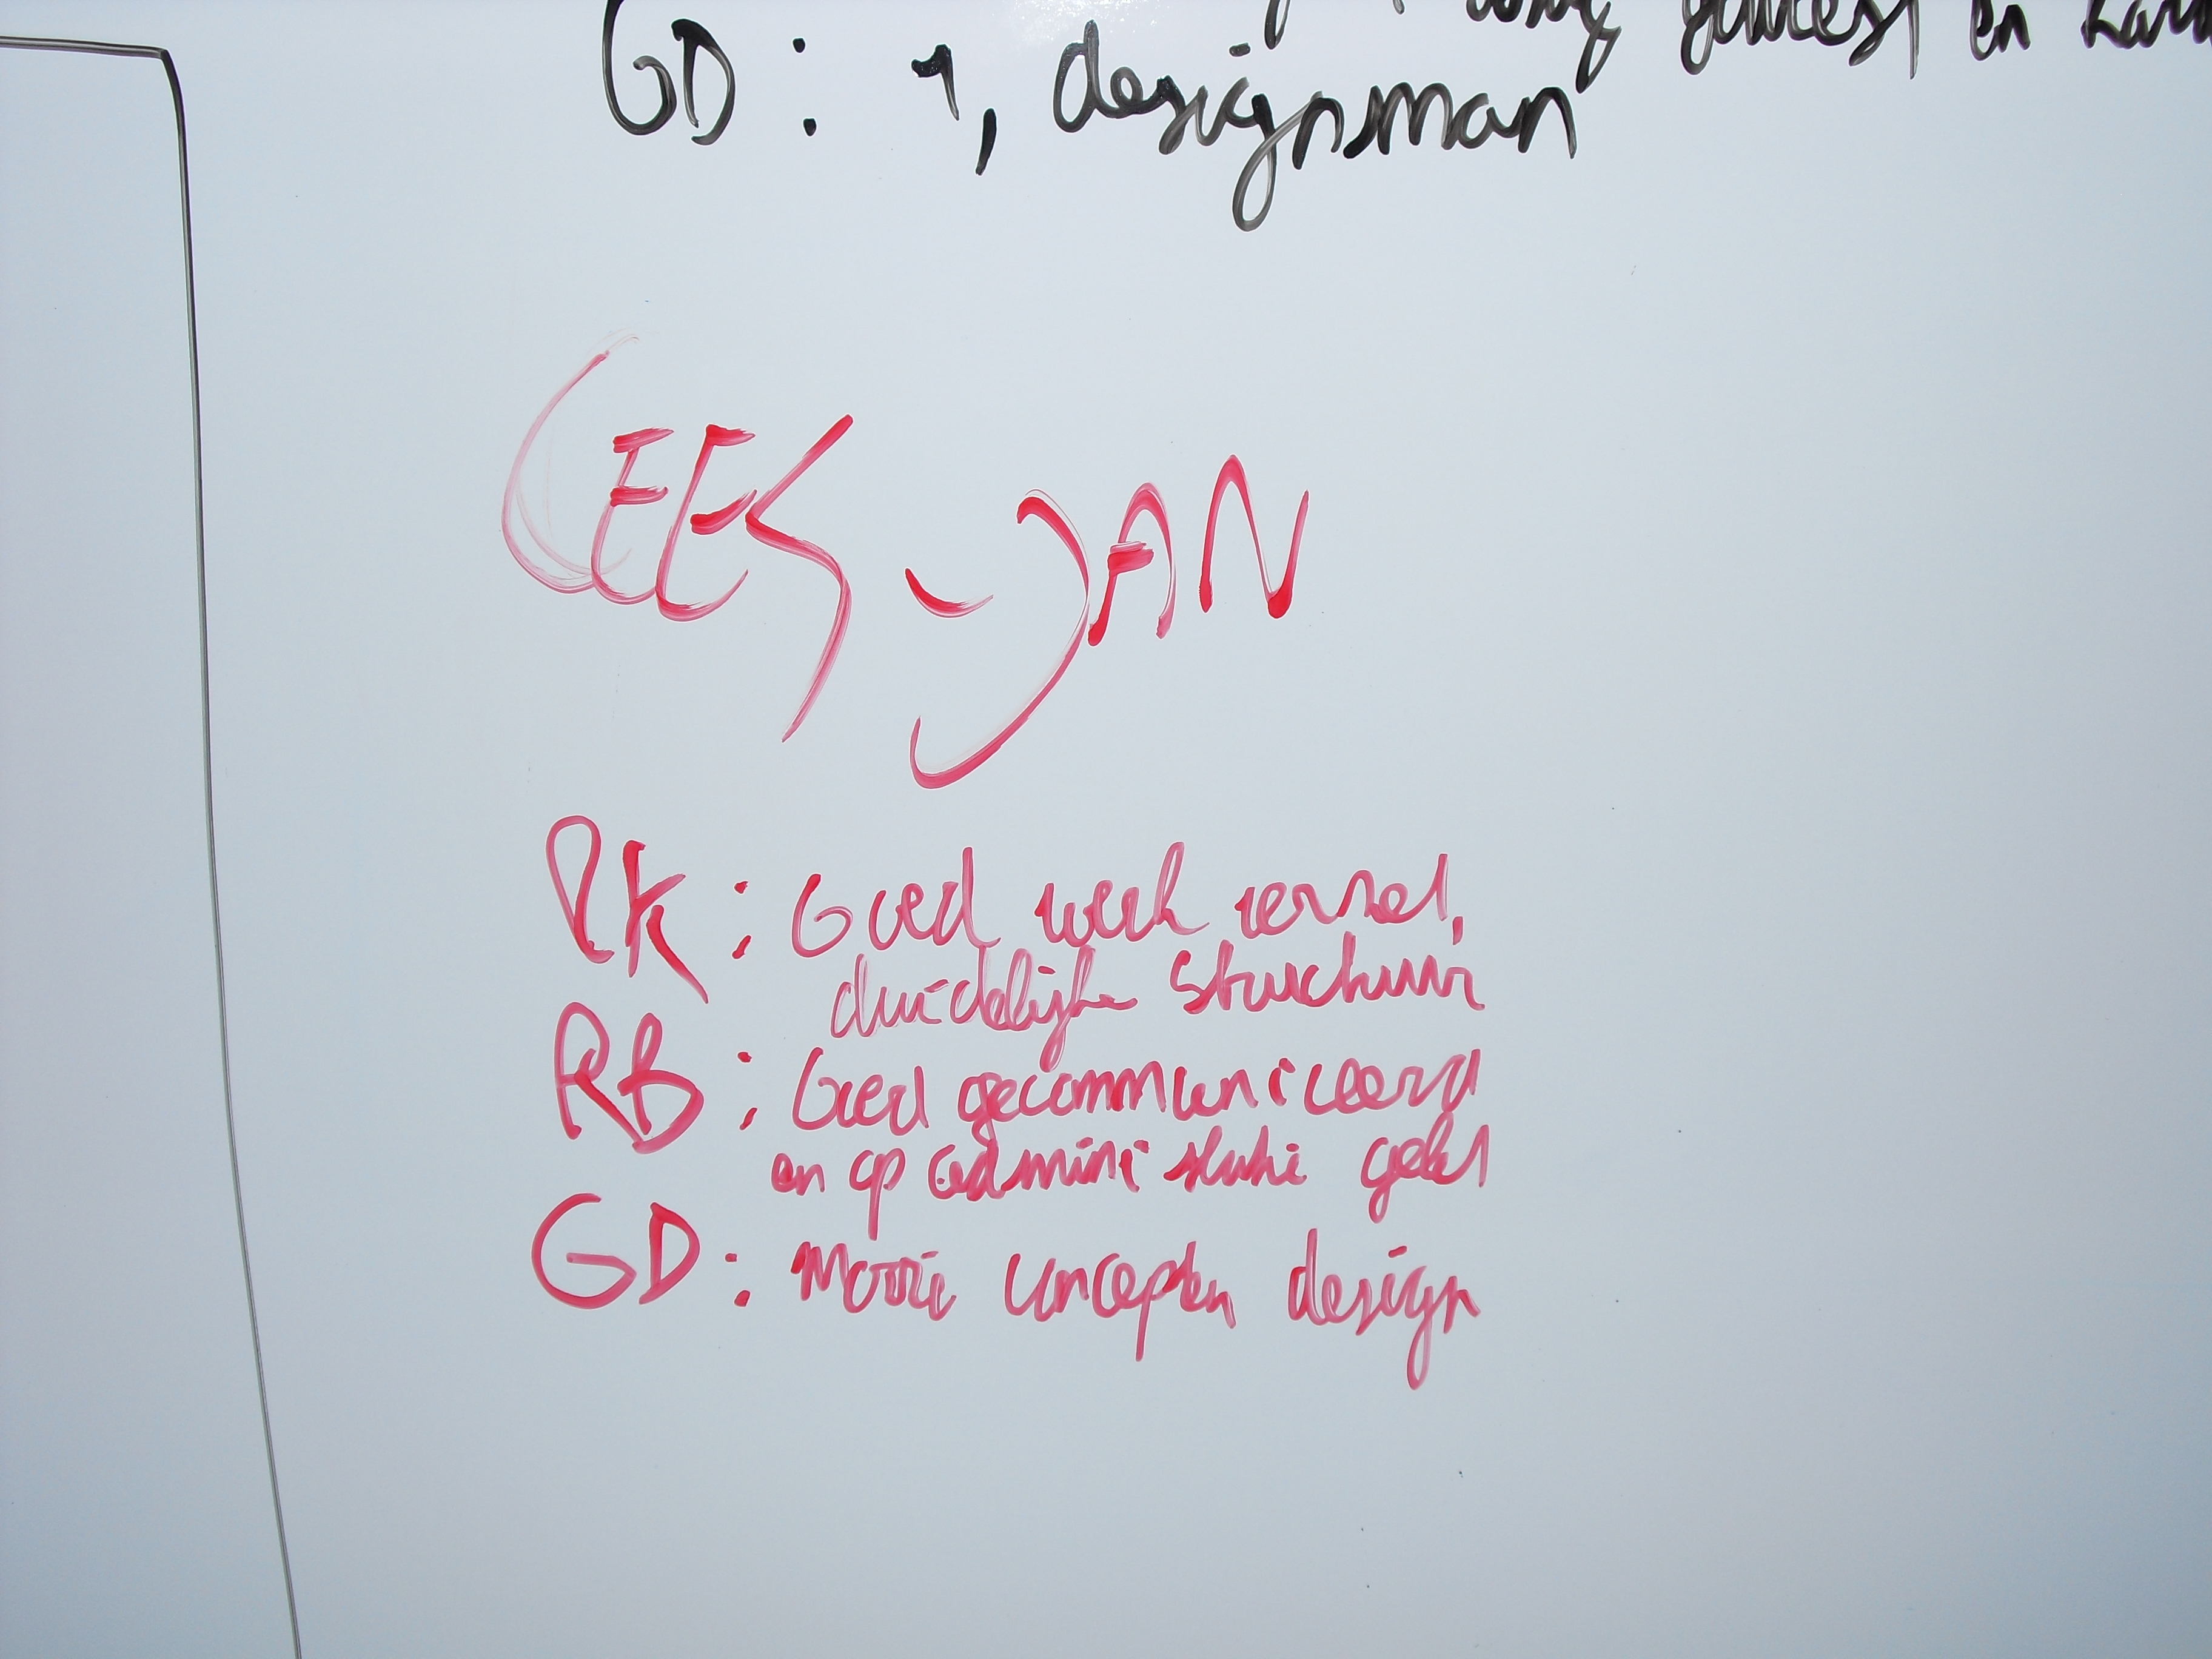 en
GD: 9, designsman
CEES-JAN
RK: Goed werk verzet,
duidelijke structuur
RB: Goed gecommuniceerd
en op administratie gelet
GD: Mooie concepten design